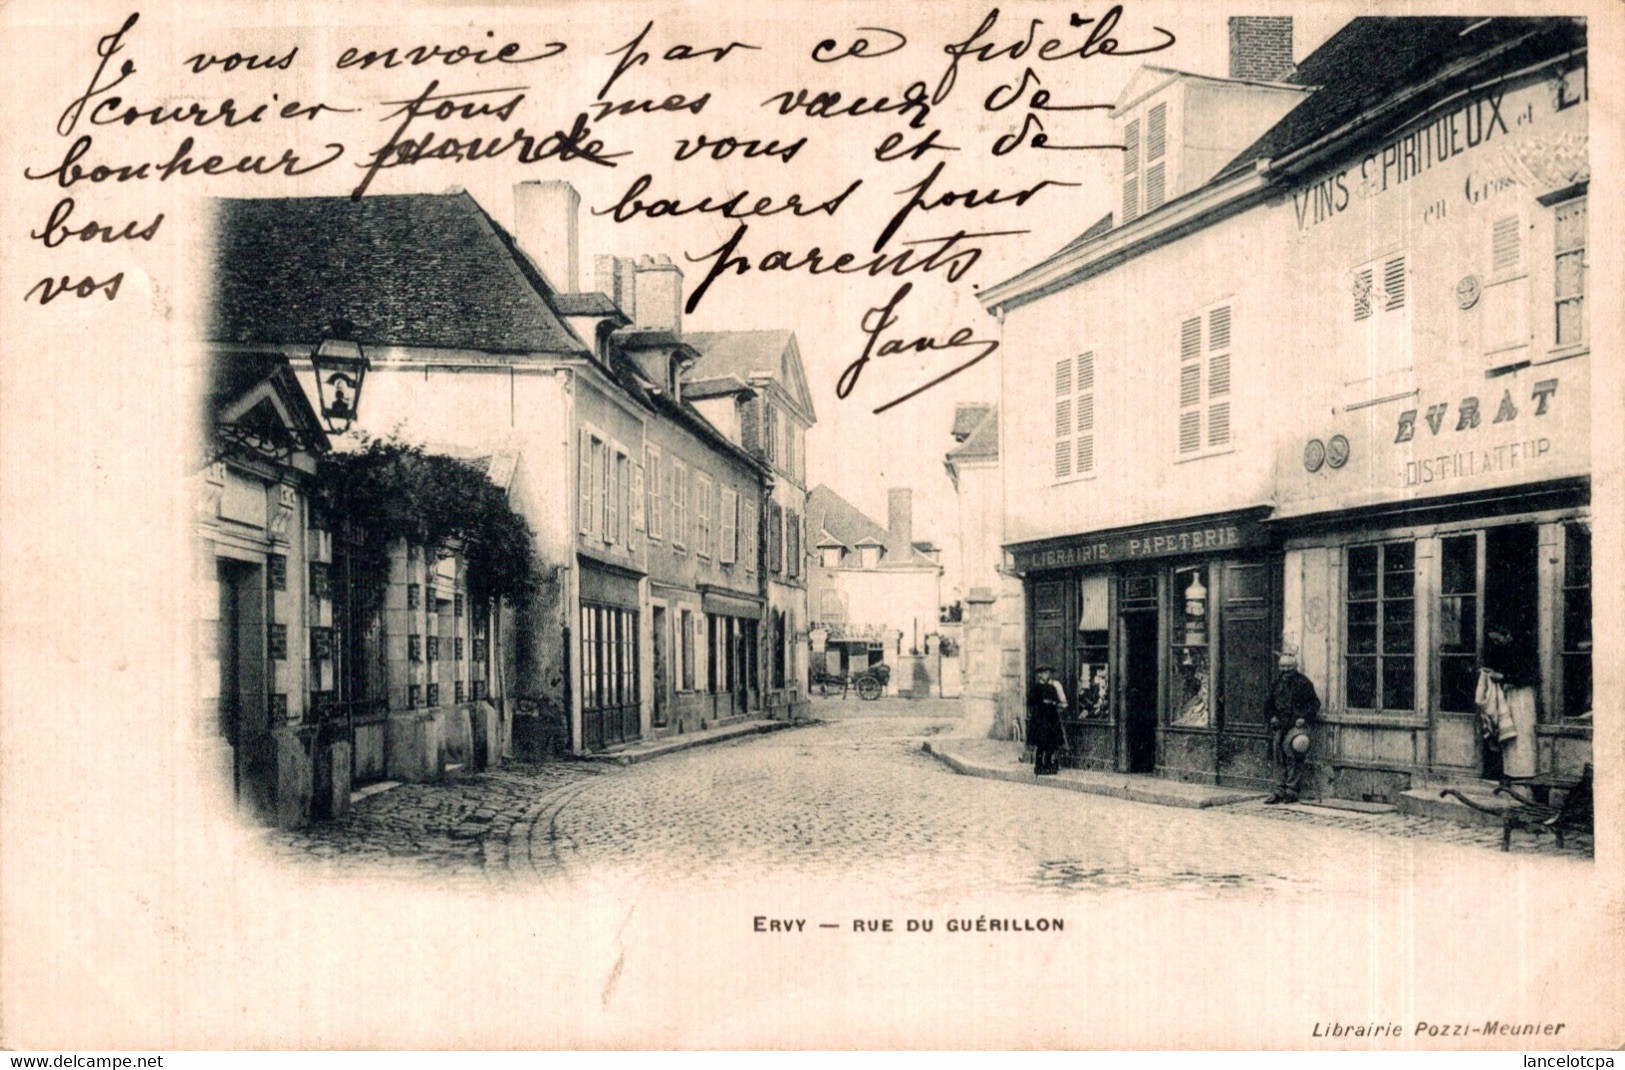 Je vous envoie par ce fidèle
courrier tous mes vœux de
bonheur pour vous et de
bous baisers pour
vos parents.
Jane
VINS SPIRITUEUX et
en Gros
EVRAT
DISTILLATEUR
LIBRAIRIE PAPETERIE
ERVY — RUE DU GUÉRILLON
Librairie Pozzi-Meunier
Delcampe.net
lancelotcpa